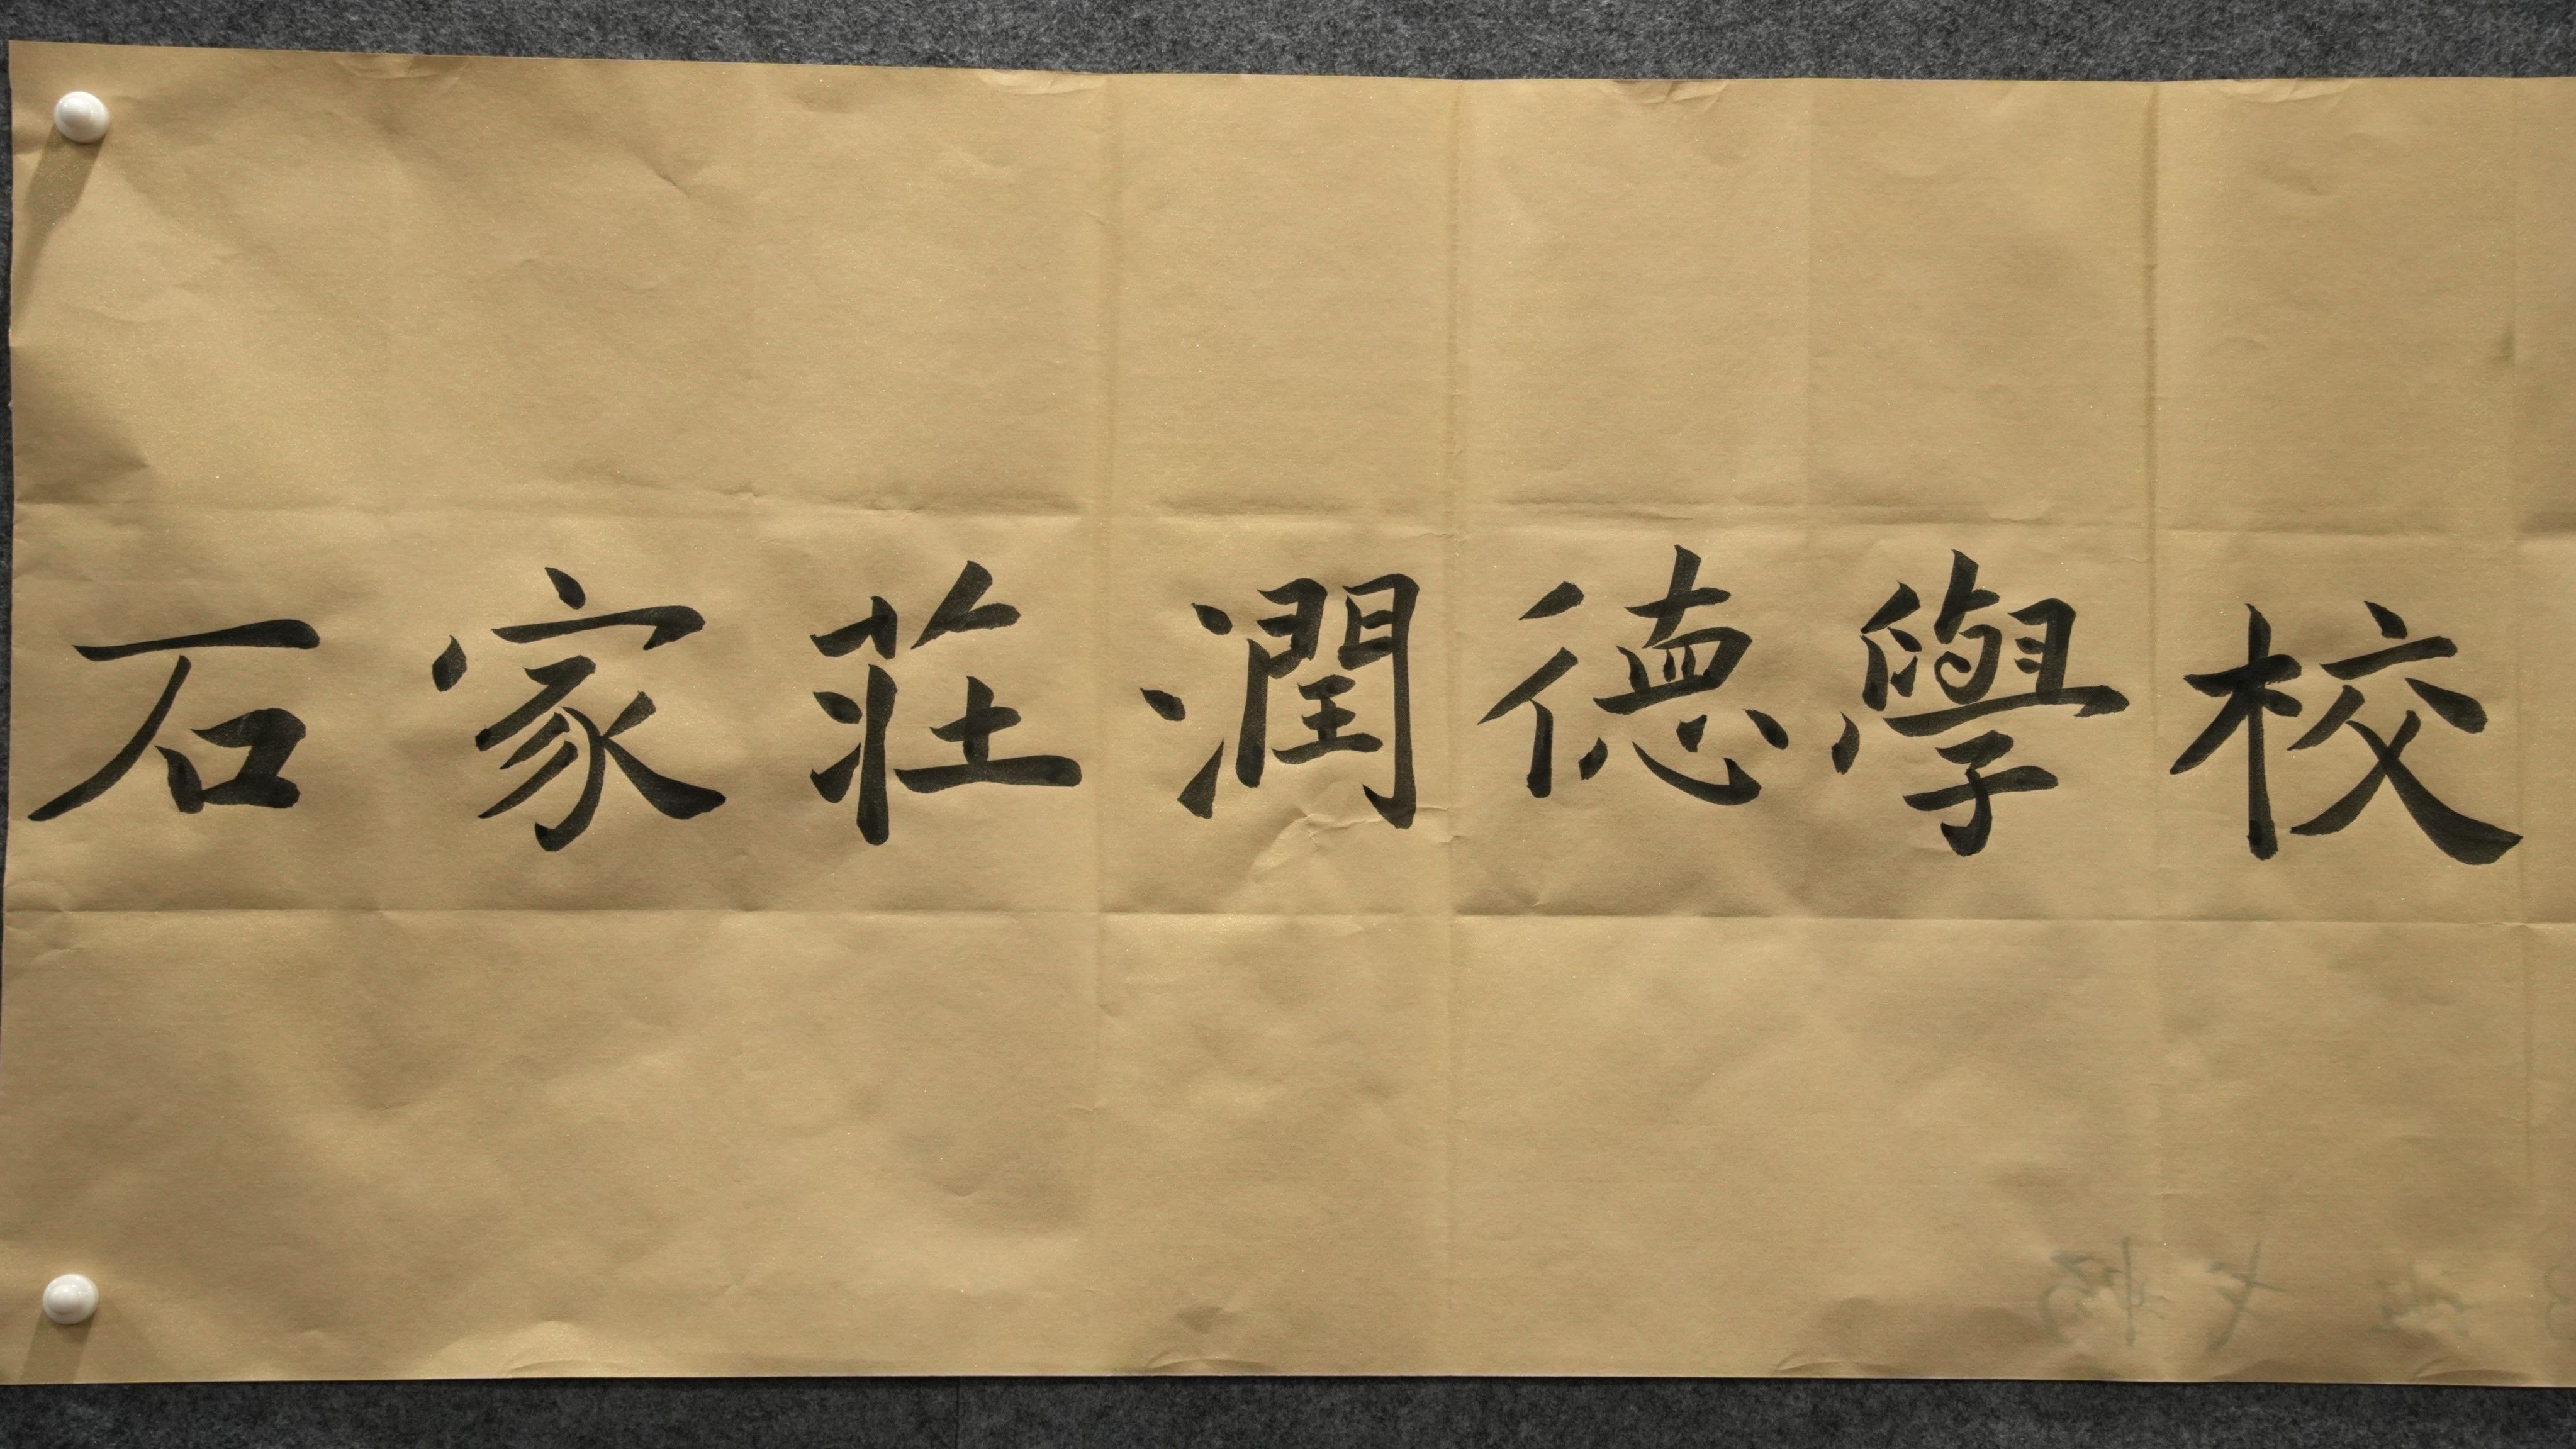 石家莊潤德學校